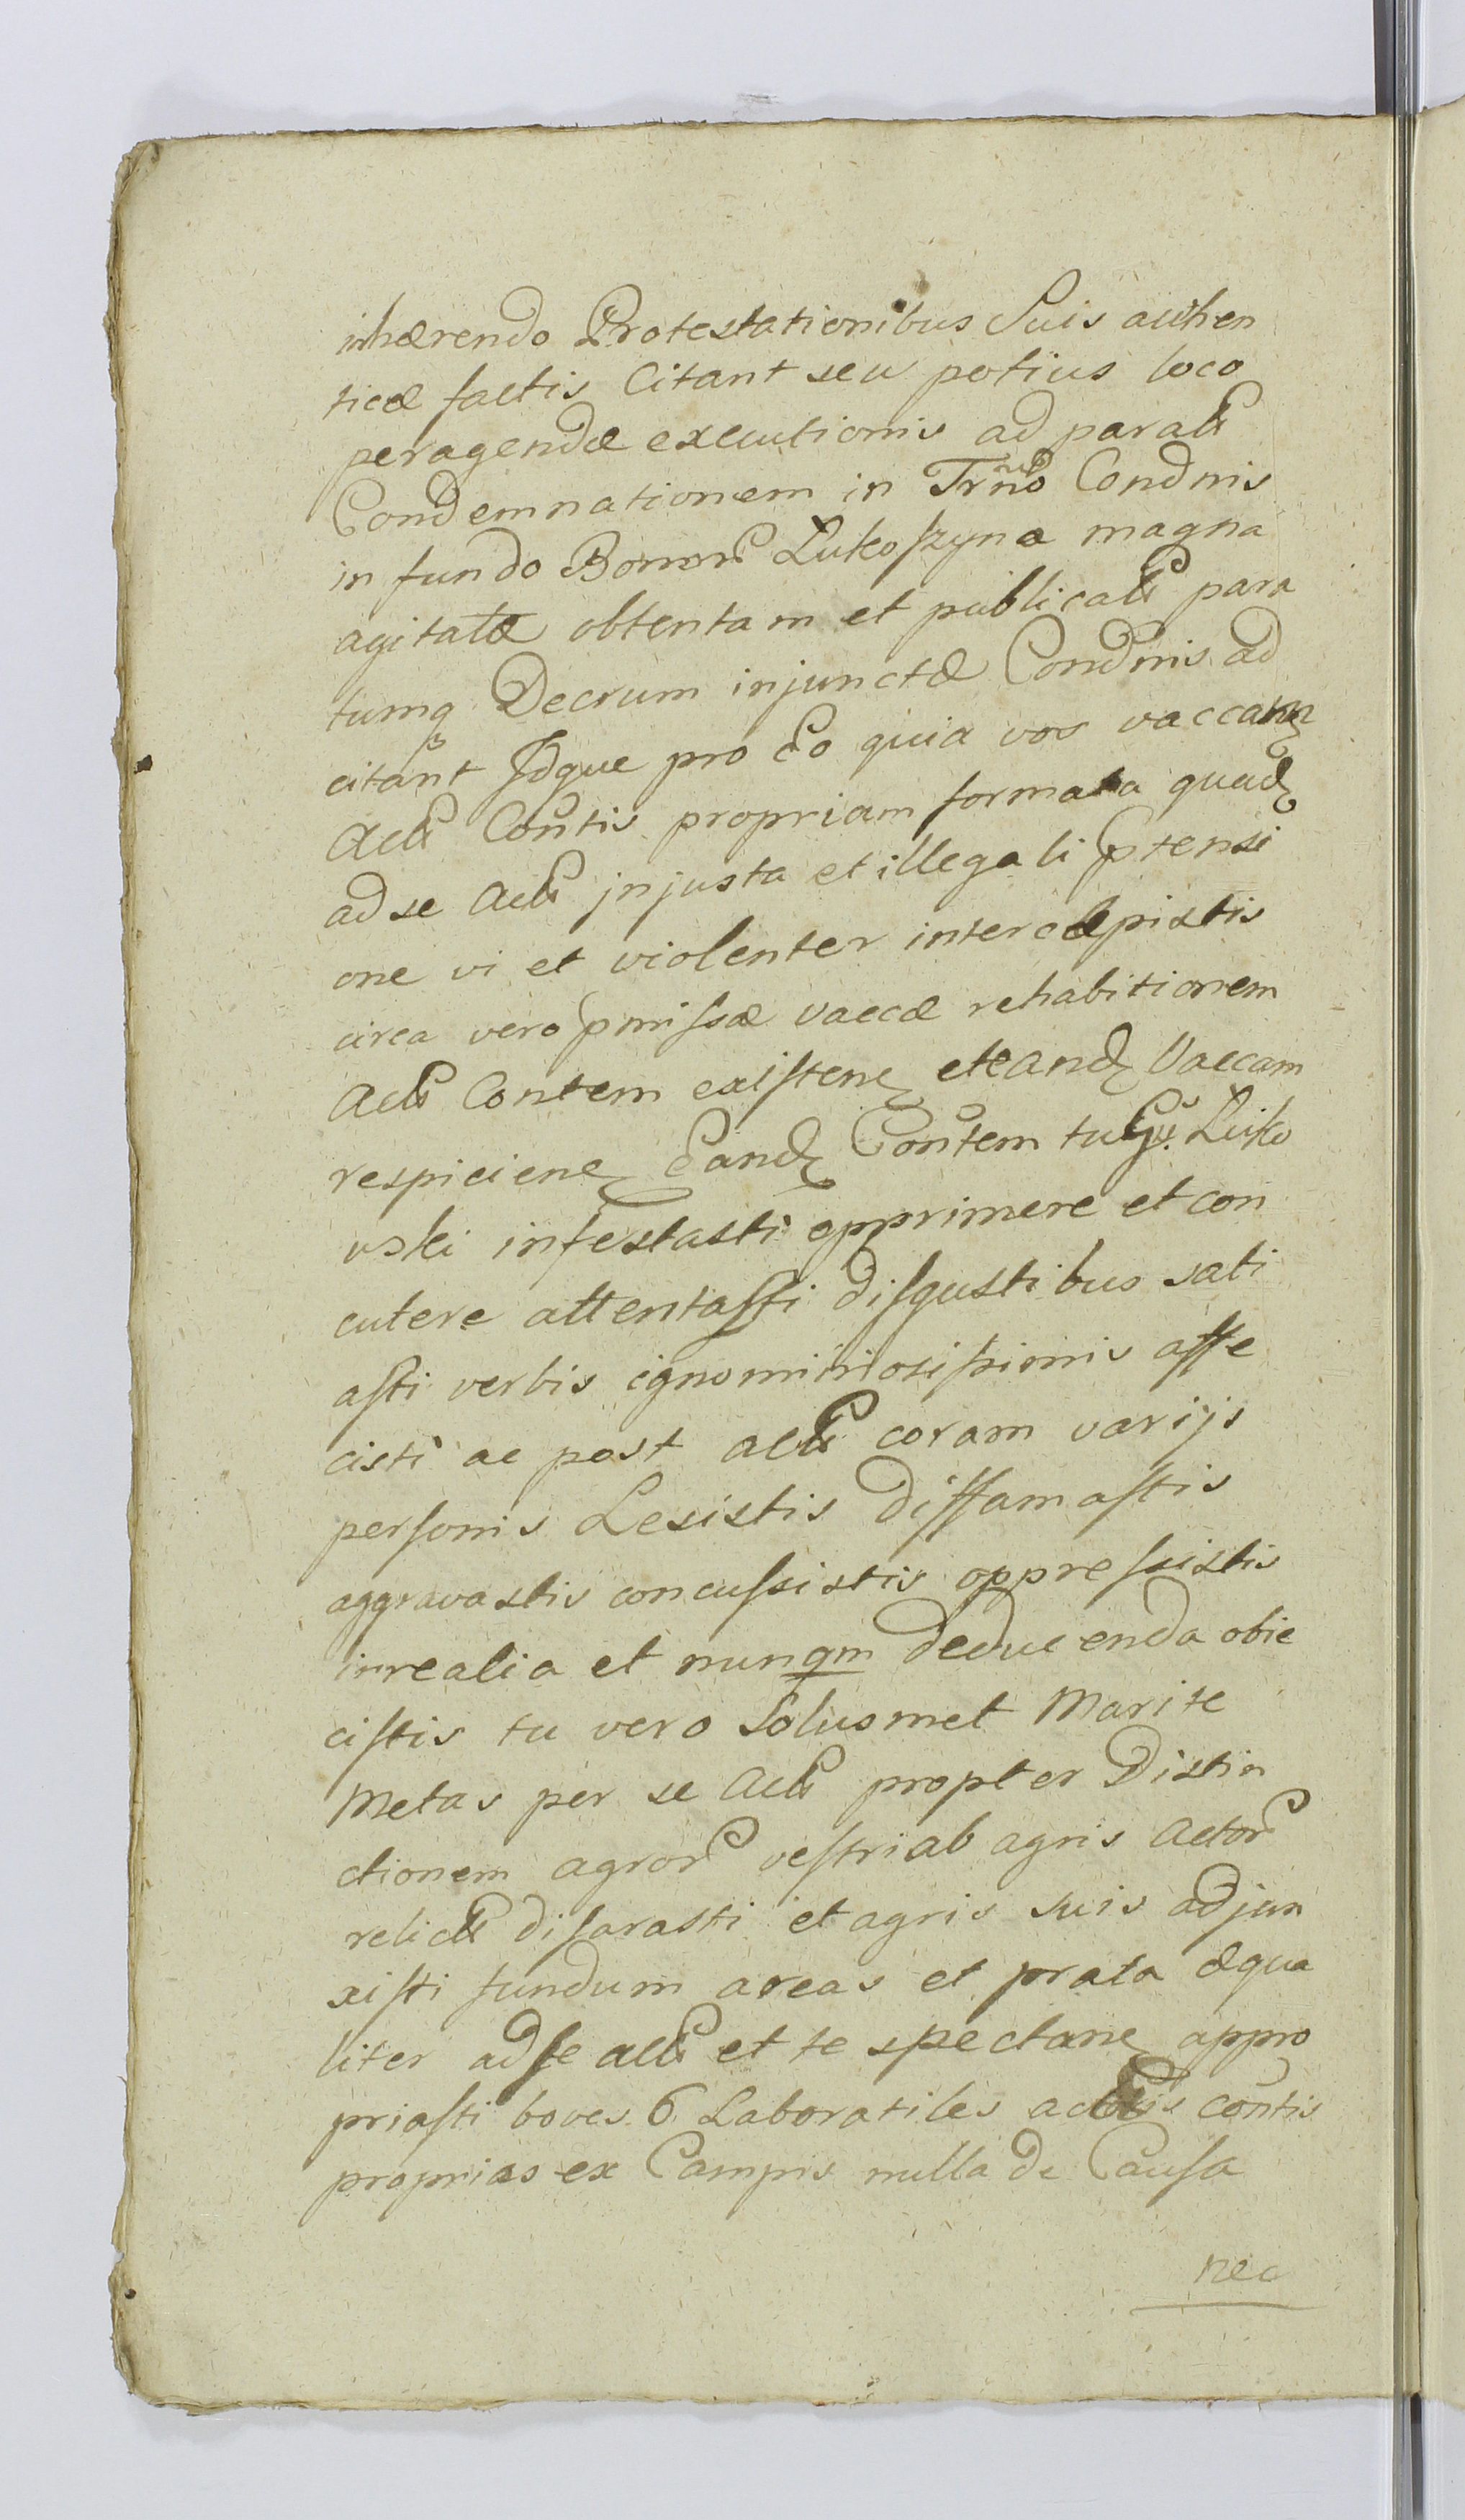 inhærendo Protestationibus Suis authen
ticæ factis Citant seu potius loco
peragendæ executionis ad parat
Condemnationem in Trno Condnis
in fundo Bonor Lukoszyna magna
agitatæ obtentam et publicat para
tumq Decrum injunctæ Condnis ad
citant Idque pro Eo quia vos vaccam
Act Contis propriam formata quad
ad se Act injusta et illegali ptensi
one vi et violenter intercæpistis
circa vero pmissæ vaccæ rehabitionem
Act Contem existen et eand Vaccam
respicien Eand Contem tu Gs. Luko
wski infestasti opprimere et con
cutere attentasti disgustibus sati
asti verbis ignominiosissimis affe
cisti ac post act coram varijs
personis Lesistis diffamastis
aggravastis concussistis oppressistis
irrealia et nunqm deducenda obie
cistis tu vero Solusmet Marite
Metas per se Act propter Distin
ctionem agror vestri ab agris Actor
relict disarasti et agris suis adjun
xisti fundum areas et prata æqua
liter ad se act et te spectan appro
priasti boves 6 Laboratiles contis
proprias ex Campis nulla de Causa
nec